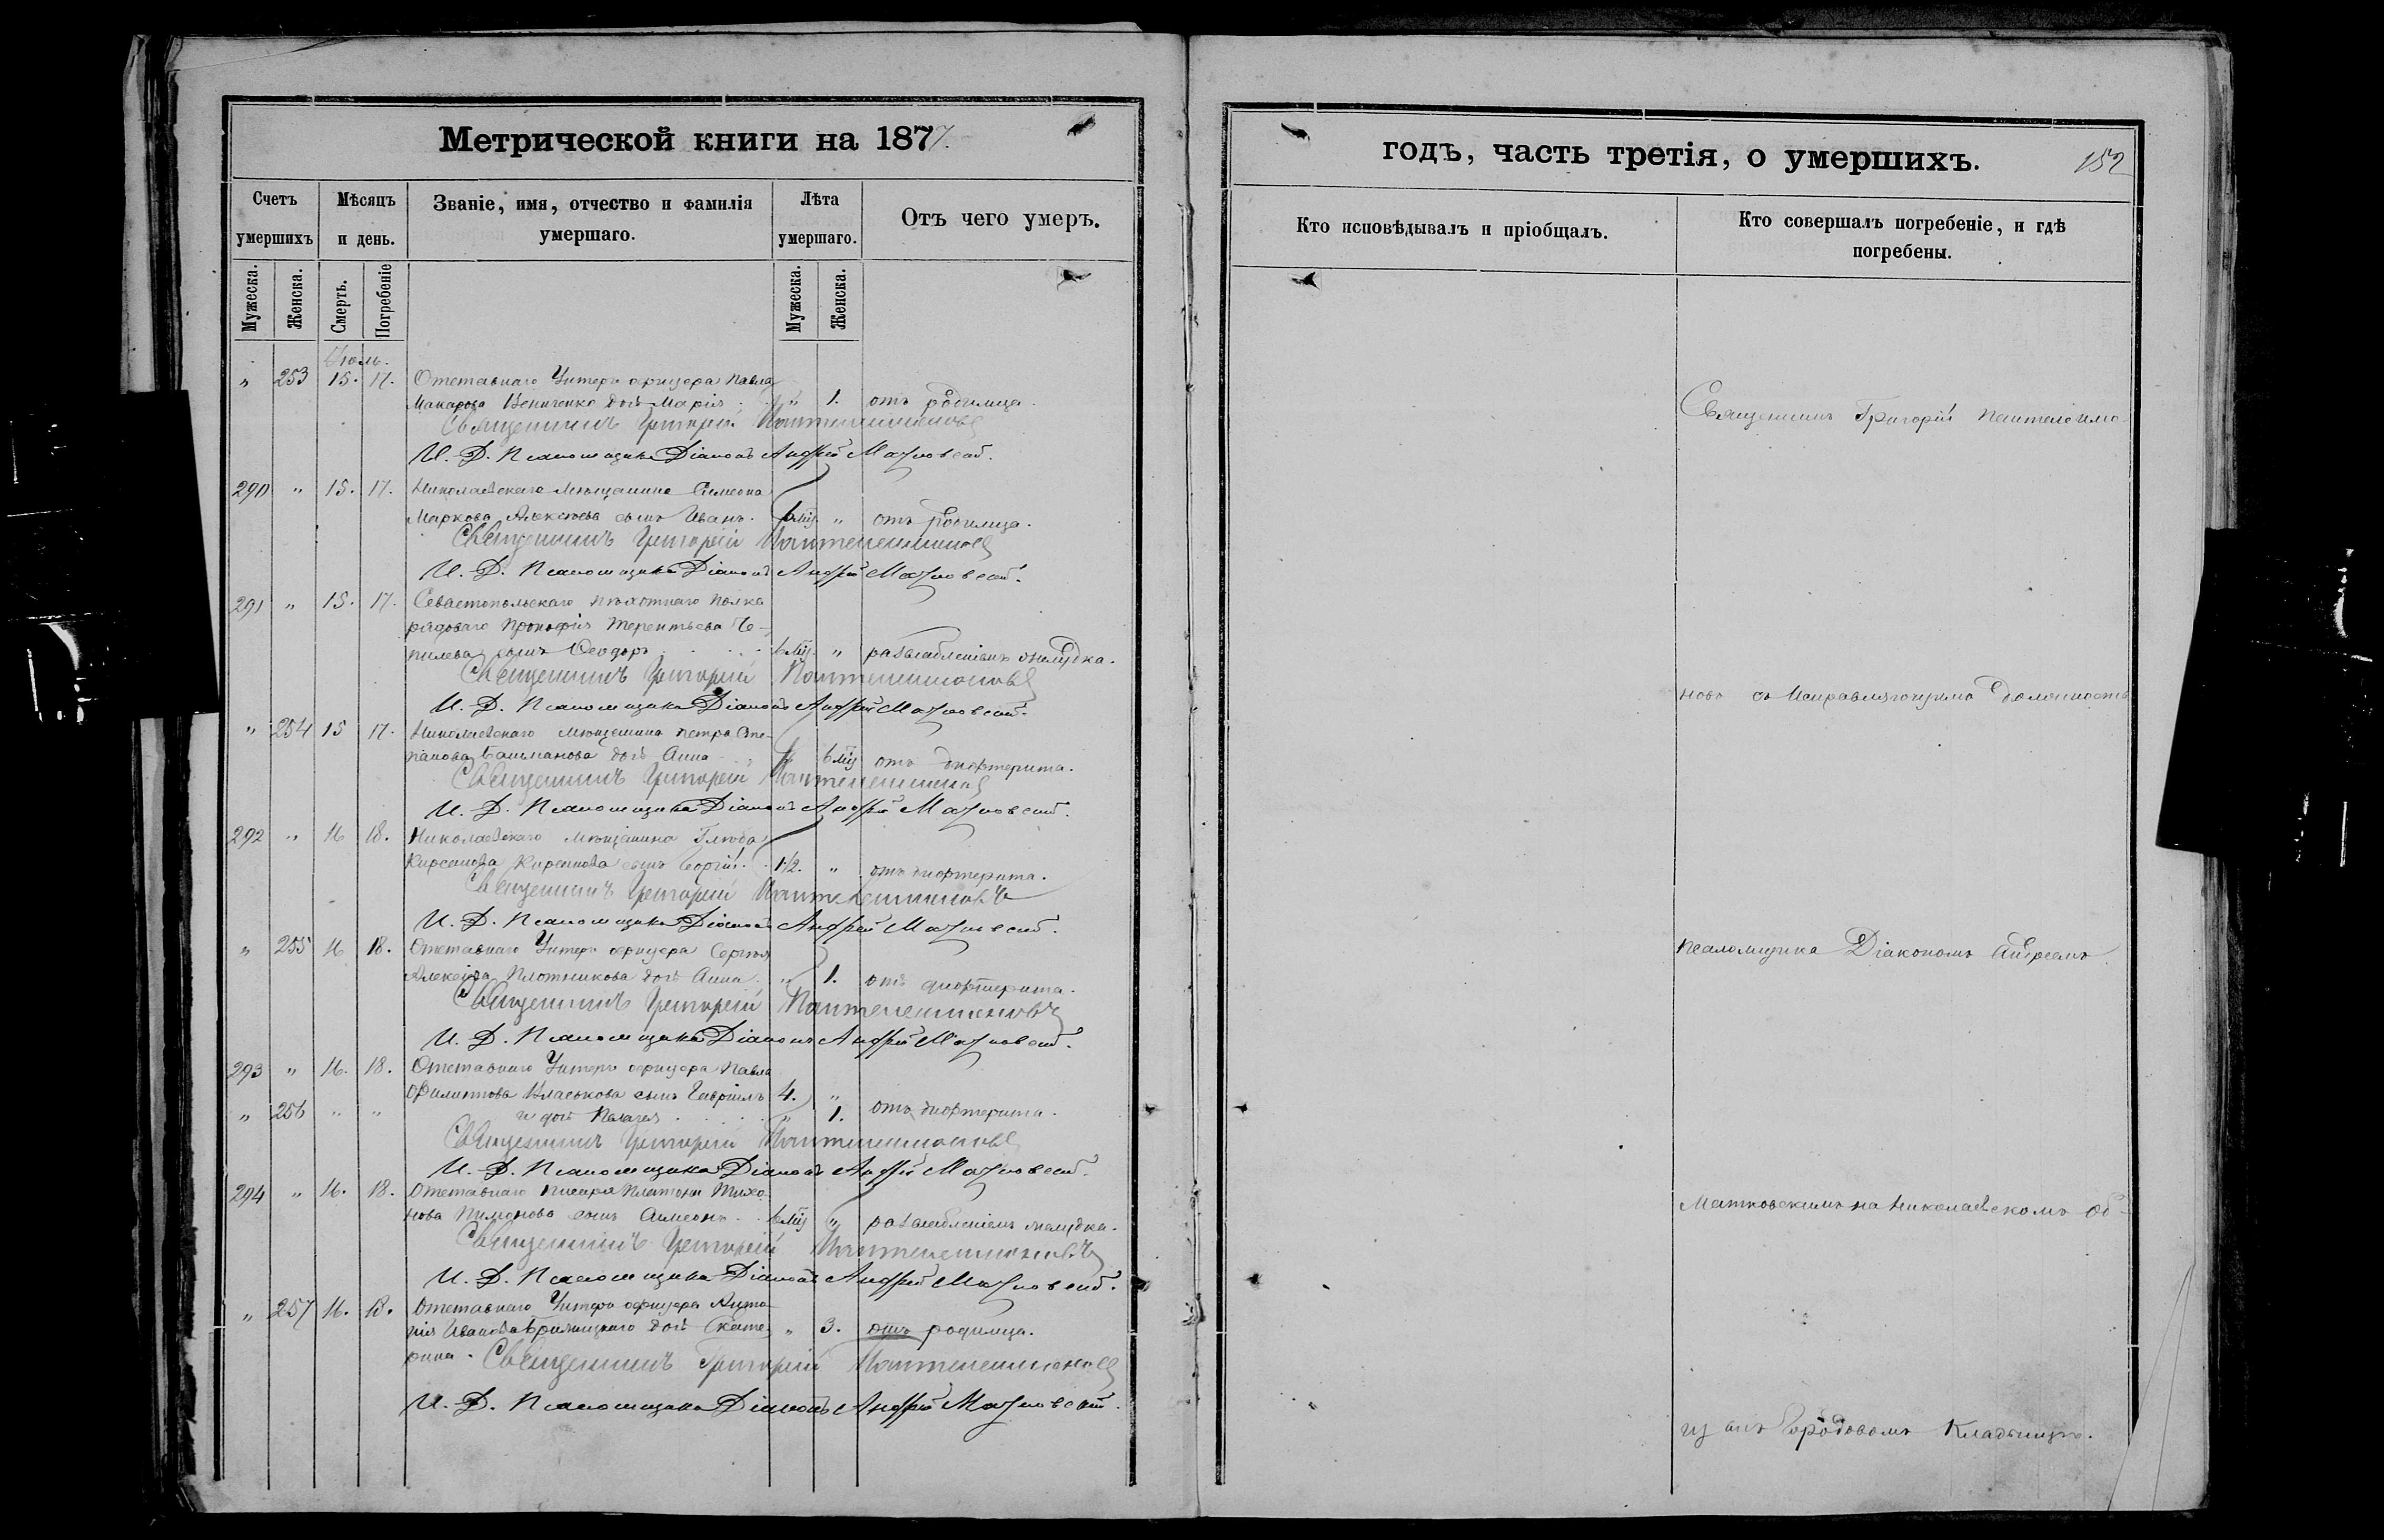 Метрической книги на 1877.
Счетъ умершихъ
Мѣсяцъ и день.
Званіе, имя, отчество и фамилія умершаго.
Лѣта умершаго.
Отъ чего умеръ.
Мужеска. Женска. Смерть. Погребеніе Мужеска. Женска.
Іюль.
" 253 15. 17. Отставнаго Унтеръ офицера Павла
Макарова дочь Марія " 1. отъ родимца.
Священникъ Григорій
И. Д. Псаломщика Діаконъ Андрей
290 " 15. 17. Николаевскаго мѣщанина Симеона
Маркова Алексѣева сынъ Иванъ. 6 мѣ. " отъ родимца.
Священникъ Григорій
И. Д. Псаломщика Діаконъ Андрей
291 " 15. 17. Севастопольскаго пѣхотнаго полка
рядоваго Прокофія Терентьева Че-
пилева сынъ Ѳеодоръ 6 мѣ. " разслабленіемъ желудка.
Священникъ Григорій
И. Д. Псаломщика Діаконъ Андрей
" 254 15 17. Николаевскаго мѣщанина Петра Сте-
панова Башманова дочь Анна " 6 мѣ отъ дифтерита.
Священникъ Григорій
И. Д. Псаломщика Діаконъ Андрей
292 " 16 18. Николаевскаго мѣщанина Глѣба
Кирсанова сынъ Георгій. 1/2. " отъ дифтерита.
Священникъ Григорій
И. Д. Псаломщика Діаконъ Андрей
" 255 16 18. Отставнаго Унтеръ офицера Сергѣя
Алексѣева Плотникова дочь Анна " 1. отъ дифтерита.
Священникъ Григорій
И. Д. Псаломщика Діаконъ Андрей
293 " 16. 18. Отставнаго Унтеръ офицера Павла
Филиппова Власькова сынъ Гавріилъ 4. " отъ дифтерита.
" 256 " " и дочь Пелагея " 1.
Священникъ Григорій
И. Д. Псаломщика Діаконъ Андрей
294 " 16. 18. Отставнаго писаря Платона Тихо-
нова Пимонова сынъ Симеонъ 6 мѣ " разслабленіемъ желудка.
Священникъ Григорій
И. Д. Псаломщика Діаконъ Андрей
" 257 16. 18. Отставнаго Унтеръ офицера Анто-
нія Иванова дочь Екате- " 3. отъ родимца.
рина. Священникъ Григорій
И. Д. Псаломщика Діаконъ Андрей
годъ, часть третія, о умершихъ. 152
Кто исповѣдывалъ и пріобщалъ.
Кто совершалъ погребеніе, и гдѣ погребены.
Священникъ Григорій Пантелеимо-
новъ съ Исправляющимъ должность
псаломщика Діакономъ Андреемъ
Матковскимъ на Николаевскомъ об-
Городовомъ Кладбищѣ.